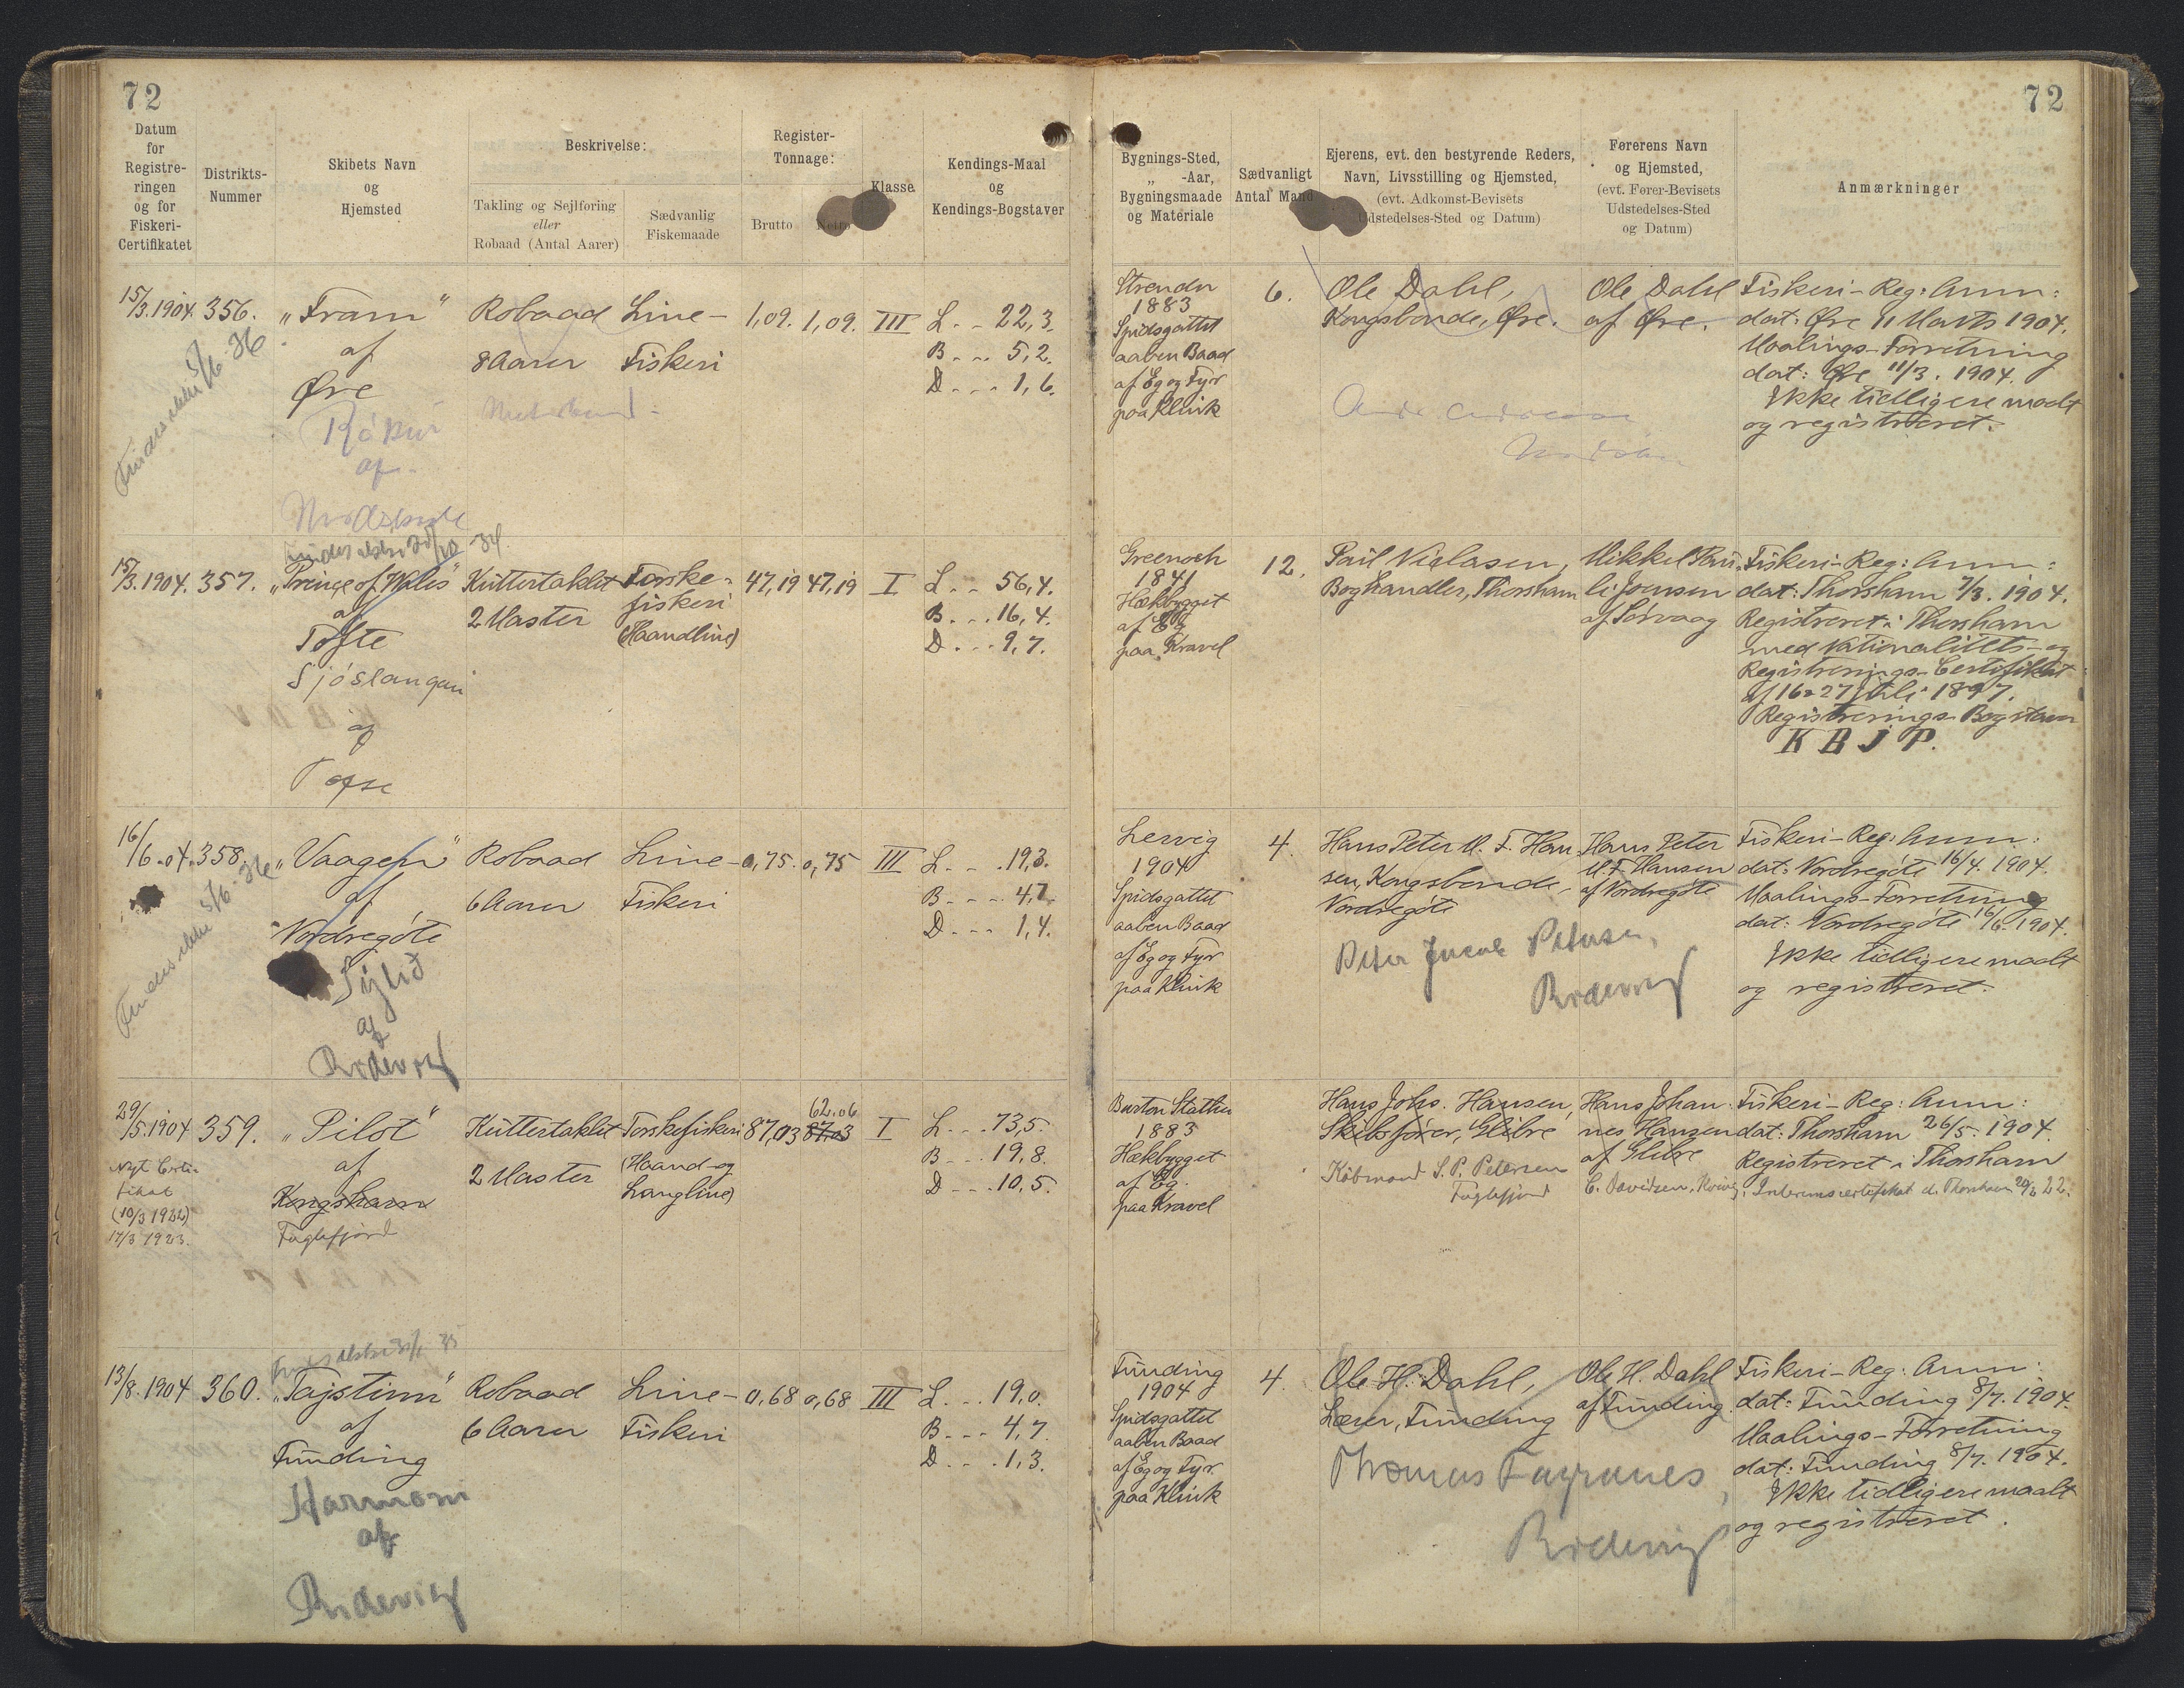 72
72
Datum
for
Registre-
ringen
og for
Fiskeri-
Certifikatet
Distrikts-
Nummer
Skibets Navn
og
Hjemsted
Beskrivelse:
Takling og Sejlføring
eller
Robaad (Antal Aarer)
Sædvanlig
Fiskemaade
Register-
Tonnage:
Brutto
Netto
Klasse
Kendings-Maal
og
Kendings-Bogstaver
Bygnings-Sted,
„ -Aar,
Bygningsmaade
og Materiale
Sædvanligt
Antal Mand
Ejerens, evt. den bestyrende Reders,
Navn, Livsstilling og Hjemsted,
(evt. Adkomst-Bevisets
Udstedelses-Sted og Datum)
Førerens Navn
og Hjemsted,
(evt. Fører-Bevisets
Udstedelses-Sted
og Datum)
Anmærkninger
15/3.1904.
Findes ikke 5/6. 36
356.
„Fram“
af
Øre
af
Robaad
8 Aarer
Line-
Fiskeri
1,09.
1,09.
III
L. . - 22,3.
B - - - 5,2.
D - - - 1,6.
Strendr
1883
Spidsgattet
aaben Baad
af Eg og Fyr
paa Klink
6.
Ole Dahl,
Kongsbonde, Øre.
Ole Dahl
af Øre.
Fiskeri-Reg: Anm:
dat: Øre 11 Marts 1904.
Maalings-Forretning
dat: Øre 11/3. 1904.
Ikke tidligere maalt
og registreret.
15/3.1904.
357.
„Prince of Wales“
af
Tofte
Sjóslangan
af
Kuttertaklet
2 Master
Torske-
fiskeri
(Haandline)
47,19
47,19
I
L - - 56,4.
B. . . 16,4.
D. . . 9,7.
Greenoch
1841
Hækbygget
af Eg
paa Kravel
12.
Poul Niclasen,
Boghandler, Thorshavn
Mikkel Pau-
li Joensen
af Sørvaag
Fiskeri-Reg: Anm:
dat: Thorshavn 7/3. 1904.
Registreret i Thorshavn
med Nationalitets- og
Registrerings-Certifikat
af 16 & 27 Juli 1897.
Registrerings-Bogstaver
K B J P.
16/6.04.
Findes ikke 5/6. 36
358.
„Vaagen“
af
Nordregöte
af
Robaad
6 Aarer
Line-
Fiskeri
0,75.
0,75
III
L. . . 19,3.
B - - - 4,7.
D - - - 1,4.
Lervig
1904
Spidsgattet
aaben Baad
af Eg og Fyr
paa Klink
4.
Hans Peter M. F. Han-
sen, Kongsbonde,
Nordregöte
Peter Jacob Petersen,
Hans Peter
M. F. Hansen
af Nordregöte
Fiskeri-Reg: Anm:
dat: Nordregöte 16/4. 1904.
Maalings-Forretning
dat: Nordregöte 16/6 1904.
Ikke tidligere maalt
og registreret.
29/5.1904
Nyt Certi-
fikat
(10/3 1922)
17/3 1923.
359.
„Pilot“
af
Kongshavn
Fuglefjord
Kuttertaklet
2 Master
Torskefiskeri
(Haand- og
Langline)
87,03
62.06
87.03
I
L. . . 73,5.
B - - - 19,8.
D - - - 10,5.
Burton Stather
1883
Hækbygget
af Eg.
paa Kravel
Hans Johs. Hansen,
Skibsfører, Glibre
Købmand S. P. Petersen
Fuglefjord
Hans Johan-
nes Hansen
af Glibre
Fiskeri-Reg: Anm:
dat: Thorshavn 26/5. 1904.
Registreret i Thorshavn
13/8.1904
360.
„Tajstinn“
af
Funding
Harmoni
af
Robaad
6 Aarer
Line-
Fiskeri
0,68
0,68
III
L. . . 19,0.
B - - - 4,7.
D. . . . 1,3.
Funding
1904
Spidsgattet
aaben Baad
af Eg og Fyr.
paa Klink
4.
Ole H. Dahl,
Lærer, Funding
Thomas
Ole H. Dahl
af Funding.
Fiskeri-Reg: Anm:
dat: Funding 8/7. 1904.
Maalings-Forretning
dat: Funding 8/7. 1904.
Ikke tidligere maalt
og registreret.